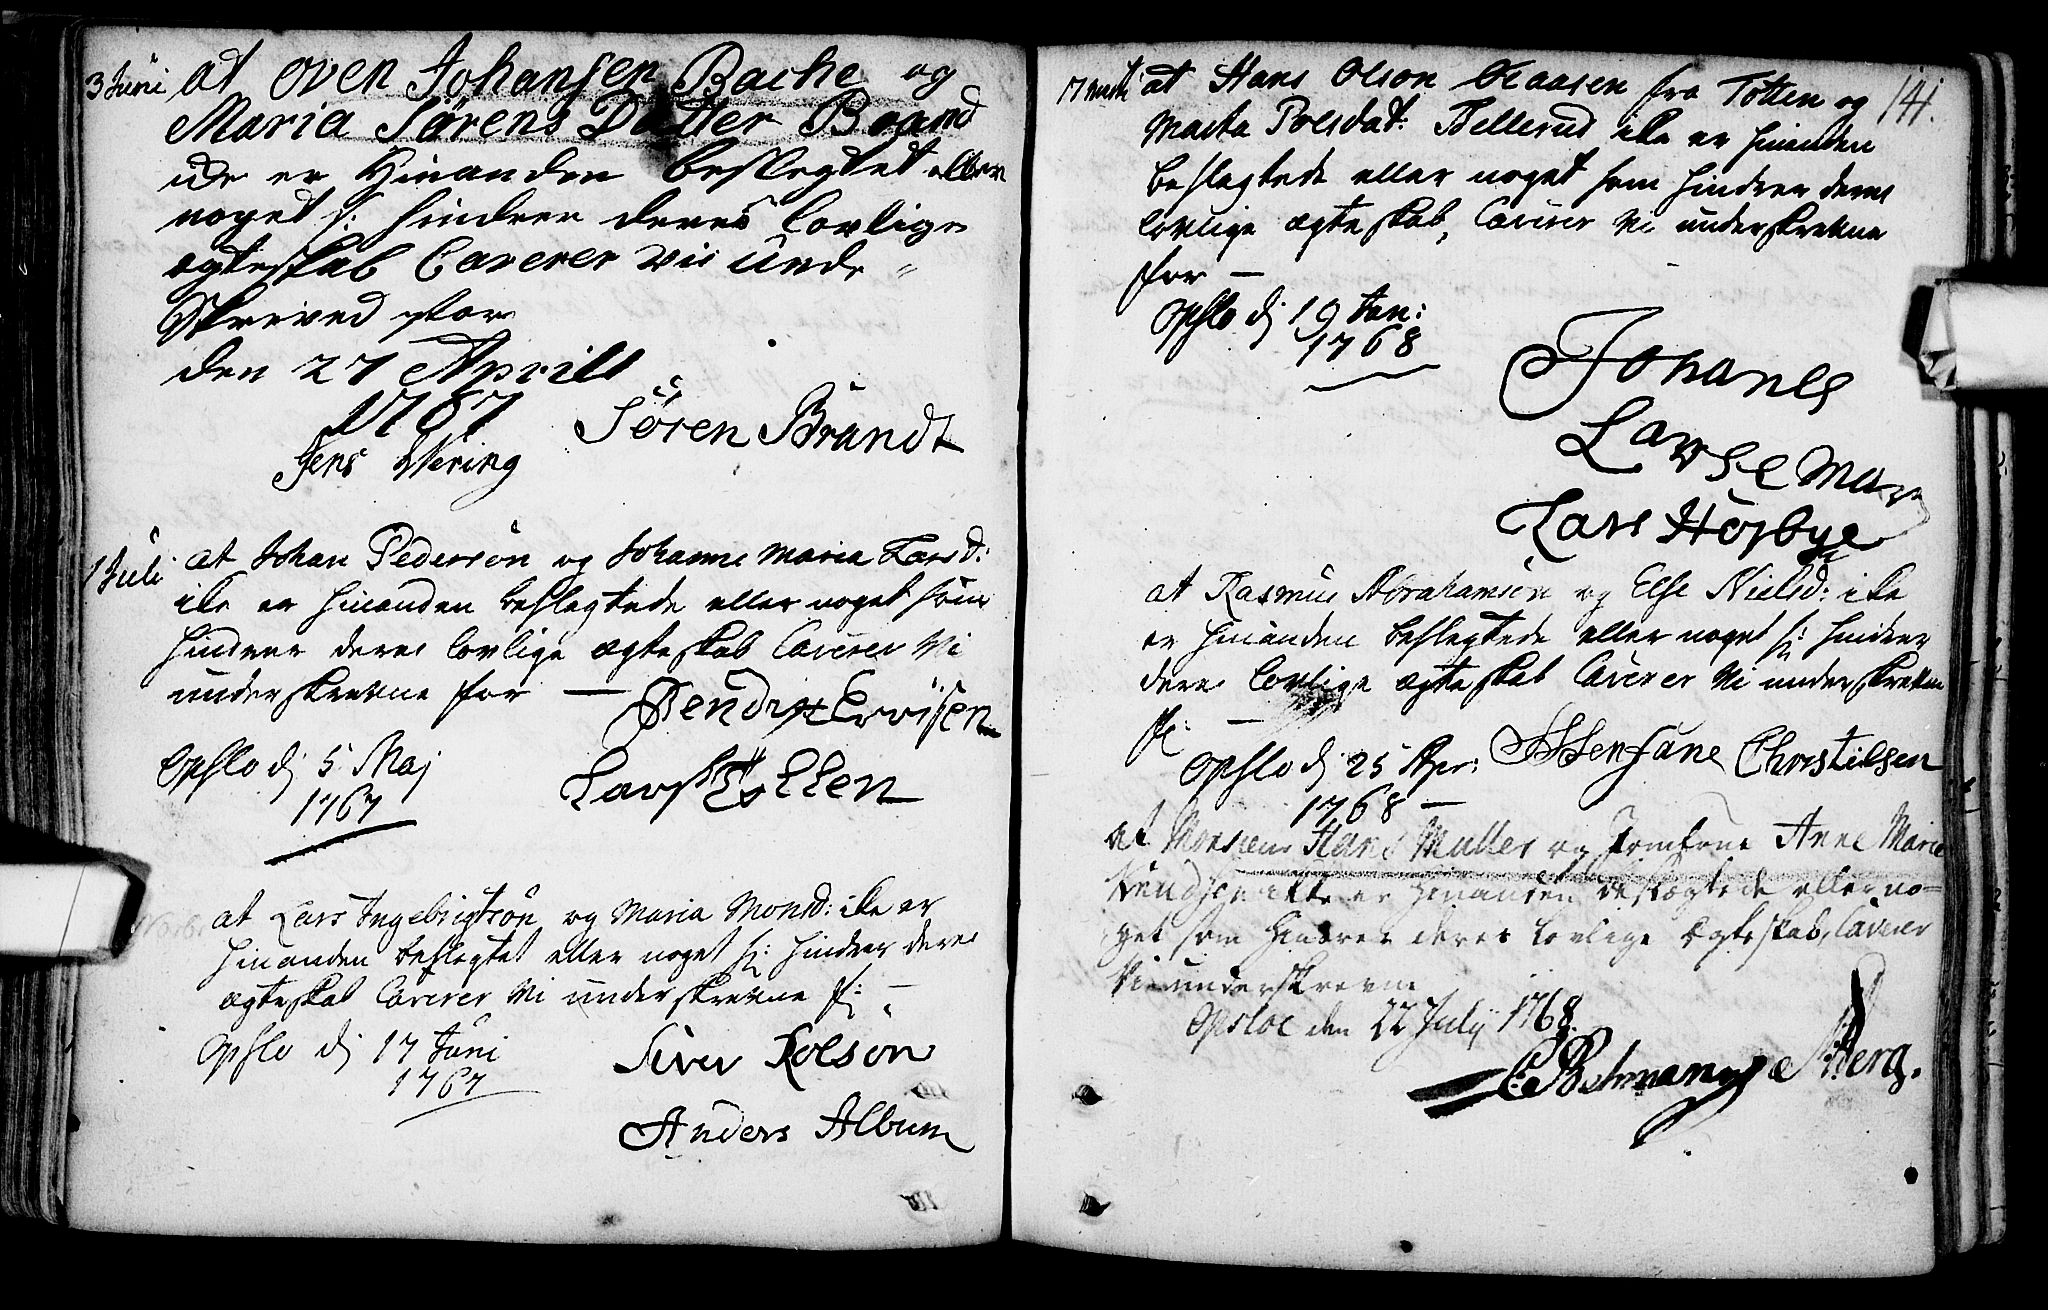 3 Juni at Oven Johansen Bache og
Maria Sørens Datter Brand
icke er Hinanden beslegtet eller
noget s: hindrer deres lovlige
ægteskab Caverer vii unde-
Skrived for
den 27 Aprill
1767
Søren Brandt
Jens Wering
1 Juli at Johan Pedersøn og Johanne Maria Larsd:
ike er hinanden beslegtede eller noget som
hindrer deres lovlige ægteskab Caverer Vi
underskrevne for —
Bendix
Opslo dj 5 Maj
1767
Lars
at Lars Ingebrigtsøn og Maria Monsd: ike er
hinanden beslegtet eller noget s: hindrer deres
ægteskab Caverer Vi underskrevne f: —
Opslo dj 17 Juni
1767
Siver Rolson
Anders Album
141.
17 at Hans Olson Klaasen fra Totten og
Marta Polsdat: Bellerud ike er hinanden
beslegtede eller noget som hindrer deres
lovlige ægteskab, Caverer Vi underskrevne
for —
Opslo dj 19 Jan:
1768
Johanes
Larse
Lars Hørbye
at Rasmus Abrahamsøn og Else Nielsd: ike
er hinanden beslegtede eller noget s: hindrer
deres lovlige ægteskab Caverer Vi underskrevne
f: —
Opslo dj 25 Apr:
1768 —
Christensen
at Monsieur Hans Muller og Jomfrue Anne Marie
ikke er hinanden beslægtede eller no-
get som hindrer deres lovlige Ægteskab, Caverer
Vi underskrevne
Opsloe den 22 Julij 1768.